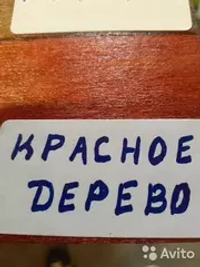 КРАСНОЕ
ДЕРЕВО
Avito